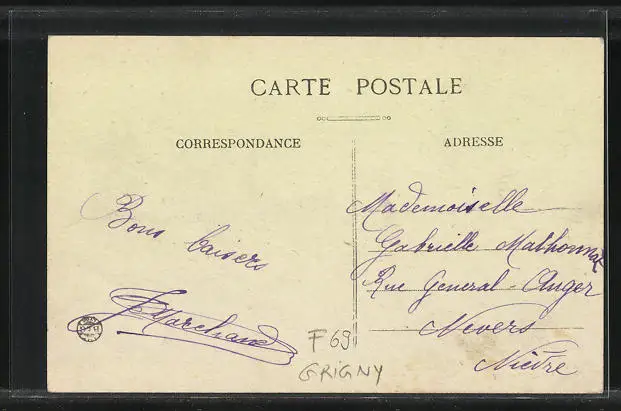 CARTE POSTALE
CORRESPONDANCE
ADRESSE
Bons baisers
Marchand
Mademoiselle
Gabrielle Mathonnat
Rue General-Auger
Nevers
Nièvre
F 69
GRIGNY